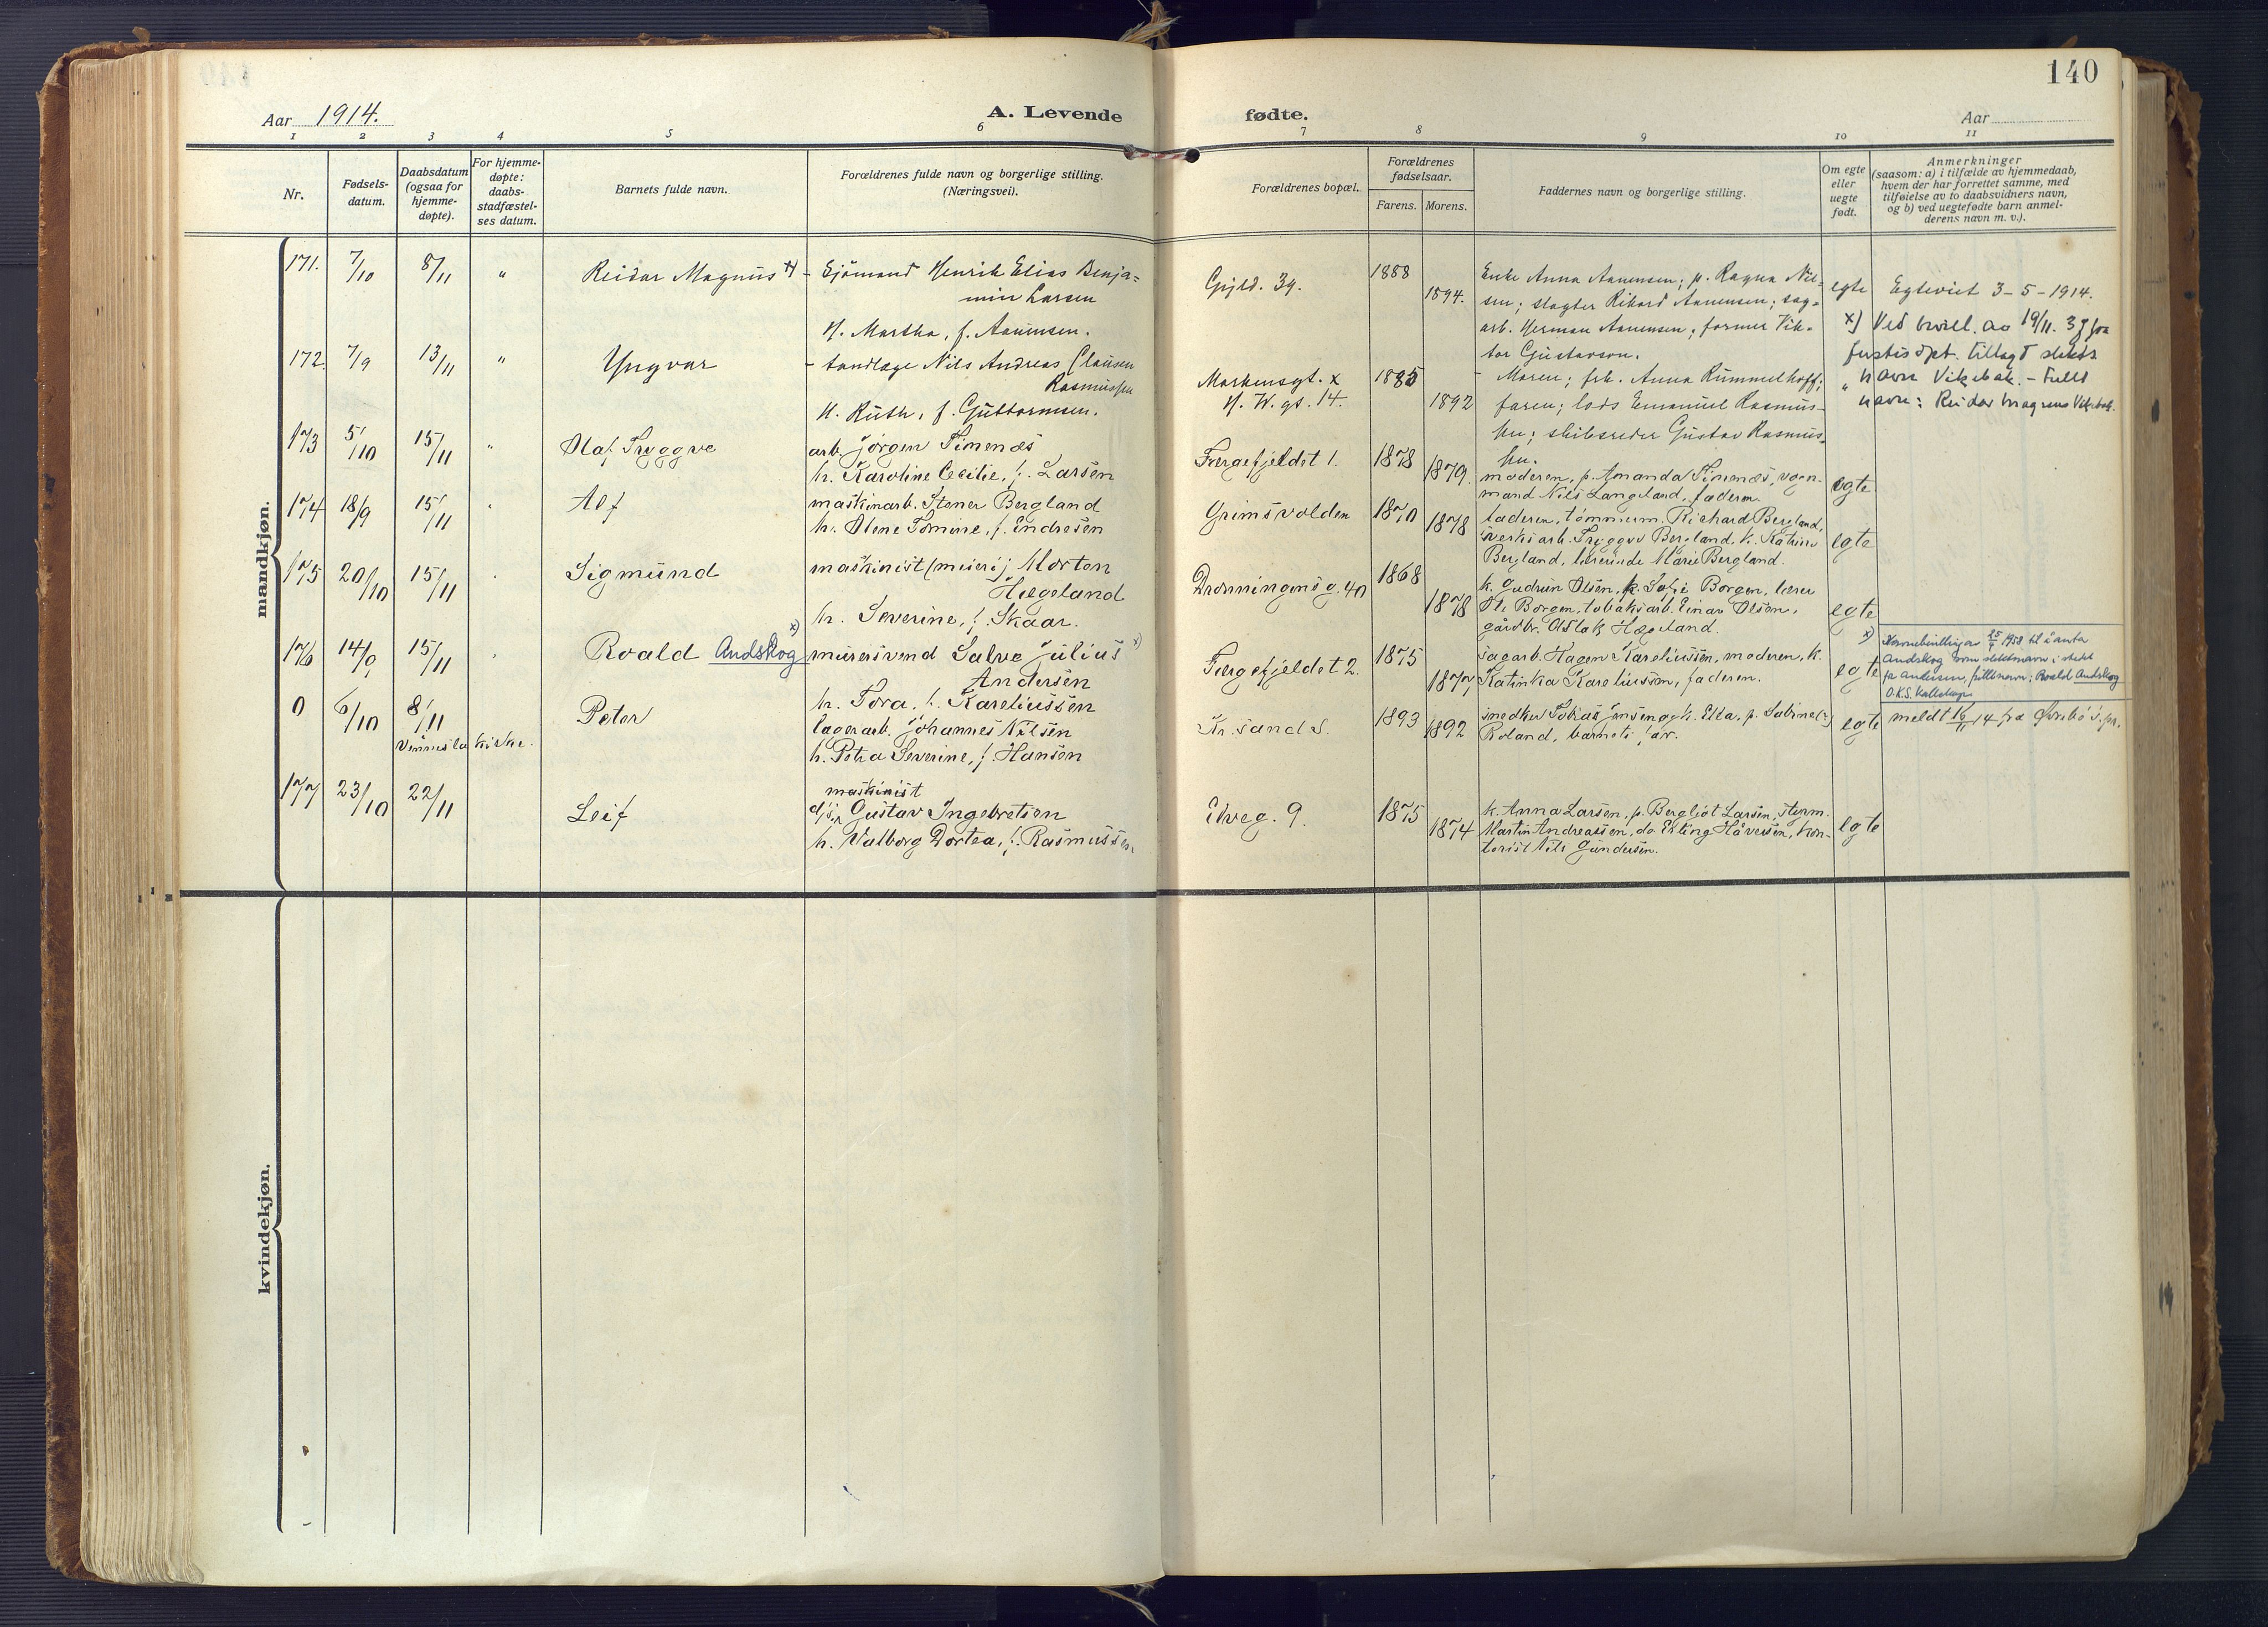 140
Aar 1914.
A. Levende fødte.
Aar
1 2 3 4 5 6 7 8 9 10 11
Nr.
Fødsels-
datum.
Daabsdatum
(ogsaa for
hjemme-
døpte).
For hjemme-
døpte:
daabs-
stadfæstel-
ses datum.
Barnets fulde navn.
Forældrenes fulde navn og borgerlige stilling.
(Næringsvei).
Forældrenes bopæl.
Forældrenes
fødselsaar.
Farens. Morens.
Faddernes navn og borgerlige stilling.
Om egte
eller
uegte
født.
Anmerkninger
(saasom: a) i tilfælde av hjemmedaab,
hvem der har forrettet samme, med
tilføielse av to daabsvidners navn,
og b) ved uegtefødte barn anmel-
derens navn m. v.).
mandkjøn.
171. 7/10 8/11 " Reidar Magnus x)
- Sjömand Henrik Elias Benja=
min Larsen
H. Martha, f. Aanensen.
Gjeld. 39.
1888
1894.
Enke Anna Aanensen; p. Ragna Niel-
sen; slagter Rikard Aanensen; sag-
arb. Herman Aanensen; former Vik-
tor Gustavson.
egte
Egteviet 3-5-1914.
x) Ved bevill. av 19/11. 37 fra
justisdpt. tillagt slekts
navn Vikebak. - Fullt
navn: Reidar Magnus Vikebak.
172. 7/9 13/11 " Yngvar
- tandlæge Nils Andreas Clausen
Rasmussen
H. Ruth, f. Guttormsen.
Markensgt. x
H. W. gt. 14.
1885
1892
- Moren; frk. Anna Rummelhoff;
faren; lods Emanuel Rasmus-
sen; skibsreder Gustav Rasmus-
sen.
"
173 5/10 15/11 " Olaf Tryggve
arb. Jørgen Timenæs
h. Karoline Cecilie, f. Larsen
Færgefjeldet 1.
1878
1879.
moderen, p. Amanda Timenæs, vogn-
mand Nils Langeland, faderen.
egte
174 18/9 15/11 " Alf
maskinarb. Stener Bergland
h. Oline Tomine, f. Endresen
Grimsvolden
1870
1878
faderen, tømmerm. Richard Bergland,
verksarb. Tryggve Bergland, k. Katrine
Bergland, lærerinde Marie Bergland.
egte
175 20/10 15/11 " Sigmund
maskinist (meieri) Morten
Hægeland
h. Severine, f. Skaar.
Dronningensg. 40
1868
1878
k. Gudrun Olsen, k. Sofie Borgen, lærer
Ole Borgen, tobaksarb. Einar Olsen,
gårdbr. Aslak Hægeland.
egte
176 14/9 15/11 " Roald Andskog x)
murersvend Salve Julius x)
Andersen
h. Tora, f. Kareliussen
Færgefjeldet 2.
1875
1877
sagarb. Hagen Kareliussen, moderen, k.
Katinka Kareliussen, faderen.
egte
x) Navnebevilling av 1958 til å anta
Andskog som slektsnavn i stedet
for Andersen, fullt navn: Roald Andskog
0 6/10 8/11 Peter
Vennesla kirke.
lagerarb. Johannes Nilsen
h. Petra Severine, f. Hansen
Kr.sand S.
1893
1892
snedker Tobias Jensen og h. Elsa, p. Sabine(?)
Roland, barnets far.
egte
meldt 14 fra Øvrebø s.pr.
177 23/10 22/11 Leif
maskinist
d/s. Gustav Ingebretsen
h. Valborg Dortea, f. Rasmussen.
Elveg. 9.
1875
1874
k. Anna Larsen, p. Bergljot Larsen, styrm.
Martin Andreassen, do Erling Håversen, kon-
torist Nils Gundersen.
egte
kvindekjøn.